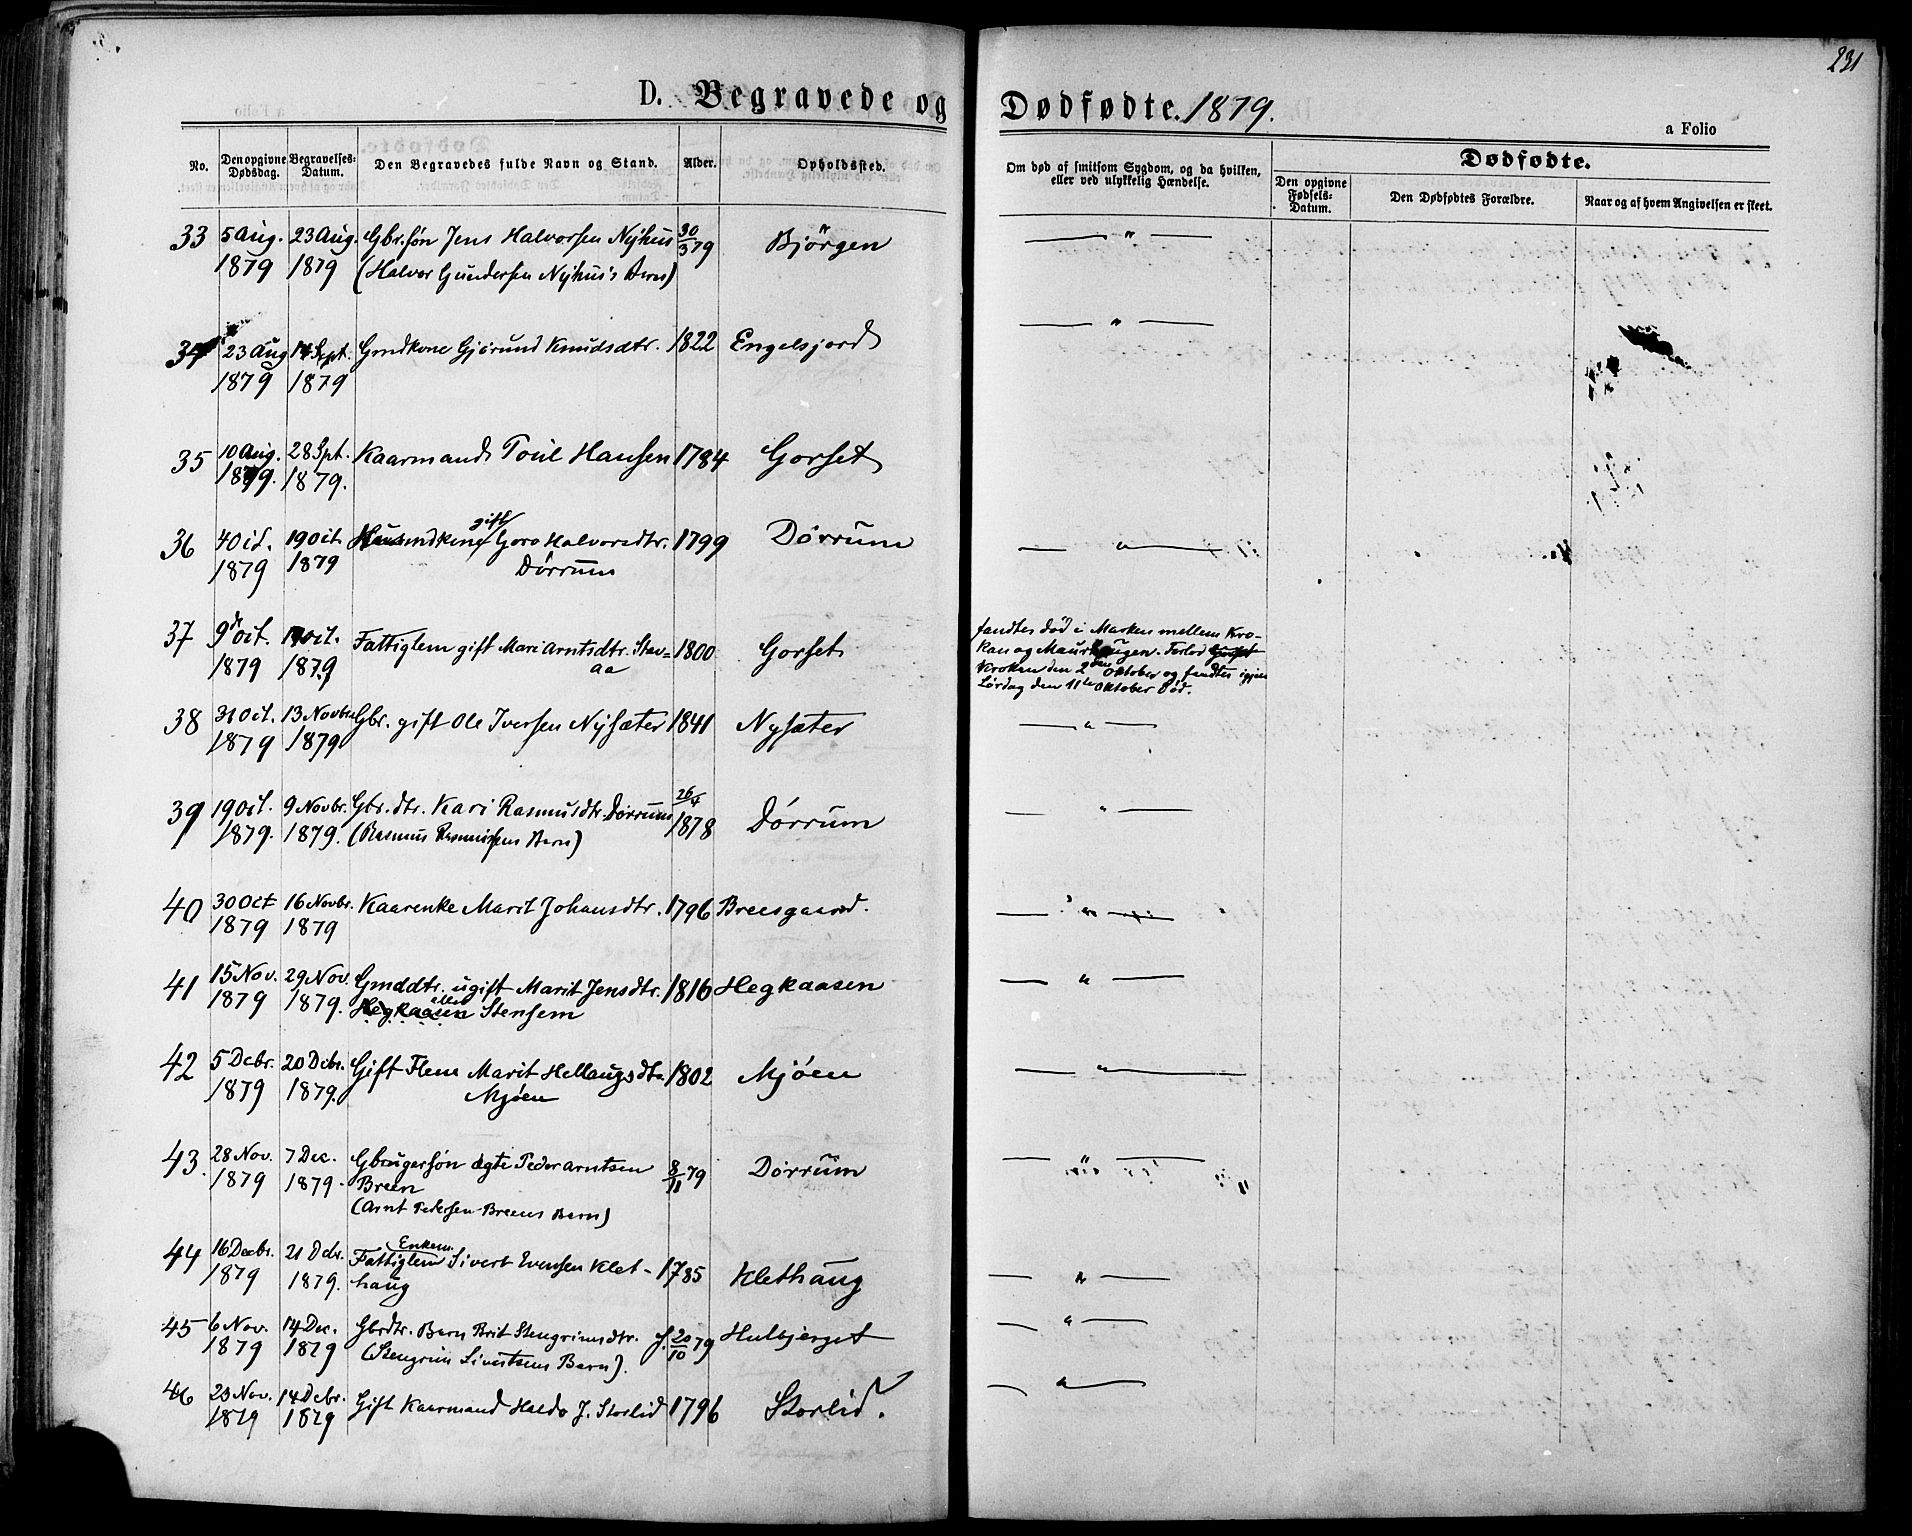 231
D. Begravede og Dødfødte. 1879.
a Folio
No.
Den opgivne Dødsdag.
Begravelses-Datum.
Den Begravedes fulde Navn og Stand.
Alder.
Opholdssted.
Om død af smitsom Sygdom, og da hvilken,
eller ved ulykkelig Hændelse.
Dødfødte.
Den opgivne Fødsels-Datum.
Den Dødfødtes Forældre.
Naar og af hvem Angivelsen er skeet.
33 5 Aug. 23 Aug. Gbr. søn Jens Halvorsen Nyhus 30/3 79 Bjørgen — " —
1879 1879 (Halvor Gundersen Nyhus's Barn)
34 23 Aug 14 Sept. Gmdkone Gjørund Knudsdtr. 1822 Engelsjord — " —
1879 1879
35 10 Aug. 28 Spt. Kaarmand Poul Hansen 1784 Gorset
1879. 1879.
gift
36 4 Oct. 19 Oct. Husmdkone Goro Halvorsdtr. 1799 Dørrum — " —
1879 1879 Dørrum
37 9de Oct. 19 Oct. Fattiglem gift Mari Arntsdtr. Stav= 1800 Gorset
1879 1879 aa
fandtes død i Marken mellem Kro-
kan og Maurhaugen. Forlod Gorset
Kroken den 2den Oktober og fandtes igjen
Lørdag den 11te Oktober død.
38 31 Oct. 13 Novbr Gbr. gift Ole Iversen Nysæter 1841 Nysæter — " —
1879 1879
39 19 Oct. 9 Novbr. Gbr. dtr. Kari Rasmusdtr. Dørrum 26/4 1878 Dørrum — " —
1879. 1879. (Rasmus Rasmussens Barn)
40 30 Oct 16 Novbr. Kaarenke Marit Johansdtr. 1796 Breesgaard. — " —
1879 1879
41 15 Nov. 29 Nov. Gmddtr. ugift Marit Jensdtr. 1816 Hegkaasen — " —
1879 1879. Hegkaasen eller Stensem
42 5 Debr. 20 Debr. Gift Flem Marit Hellaugsdtr 1802 Mjøen — " —
1879 1879. Mjøen
43. 28 Nov. 7 Dec. Gbrugersøn ægte Peder Arntsen 8/11 79 Dørrum — " —
1879 1879. Breen
(Arnt Pedersen Breens Barn)
Enkem.
44 16 Decbr. 21 Debr. Fattiglem Sivert Evensen Klet- 1785 Klethaug — " —
1879 1879. haug
45 6 Nov. 14 Dec. Gbrdtr. Barn Brit Stengrimsdtr. f. 20/10 79 Hulbjerget — " —
1879 1879 (Stengrim Sivertsens Barn).
46 23 Nov. 14 Debr. Gift Kaarmand Haldo J. Storlid 1796 Storlid. — " —
1879 1879